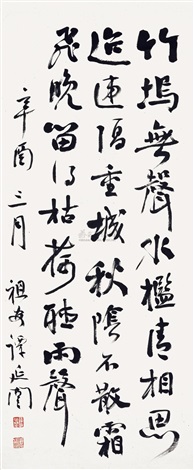 竹塢無聲水檻清相思
迢遞隔重城秋陰不散霜
飛晚留得枯荷聽雨聲
辛酉三月
祖安譚延闓